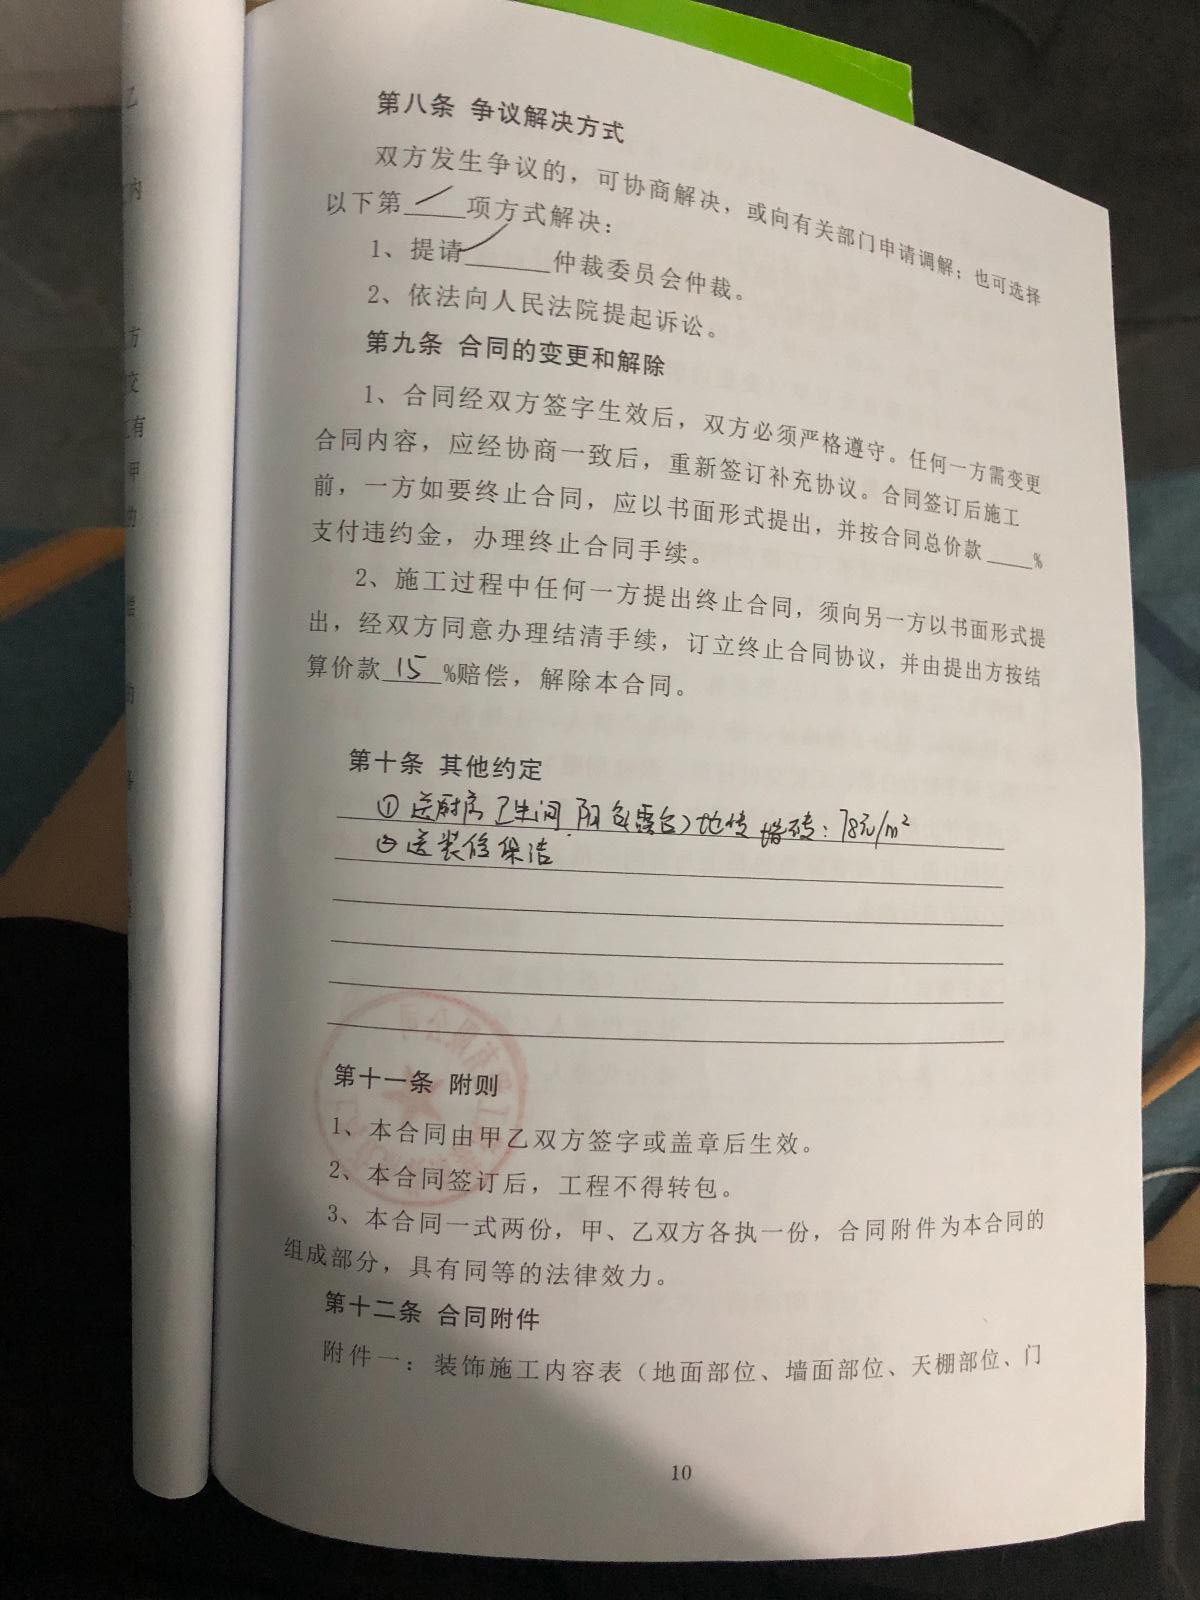 第八条 争议解决方式
双方发生争议的，可协商解决，或向有关部门申请调解；也可选择
以下第 / 项方式解决：
1、提请 / 仲裁委员会仲裁。
2、依法向人民法院提起诉讼。
第九条 合同的变更和解除
1、合同经双方签字生效后，双方必须严格遵守。任何一方需变更
合同内容，应经协商一致后，重新签订补充协议。合同签订后施工
前，一方如要终止合同，应以书面形式提出，并按合同总价款____%
支付违约金，办理终止合同手续。
2、施工过程中任何一方提出终止合同，须向另一方以书面形式提
出，经双方同意办理结清手续，订立终止合同协议，并由提出方按结
算价款 15 %赔偿，解除本合同。
第十条 其他约定
① 送厨房 卫生间 阳台(露台)地砖 墙砖：78元/m²
② 送装修保洁
第十一条 附则
1、本合同由甲乙双方签字或盖章后生效。
2、本合同签订后，工程不得转包。
3、本合同一式两份，甲、乙双方各执一份，合同附件为本合同的
组成部分，具有同等的法律效力。
第十二条 合同附件
附件一：装饰施工内容表（地面部位、墙面部位、天棚部位、门
10